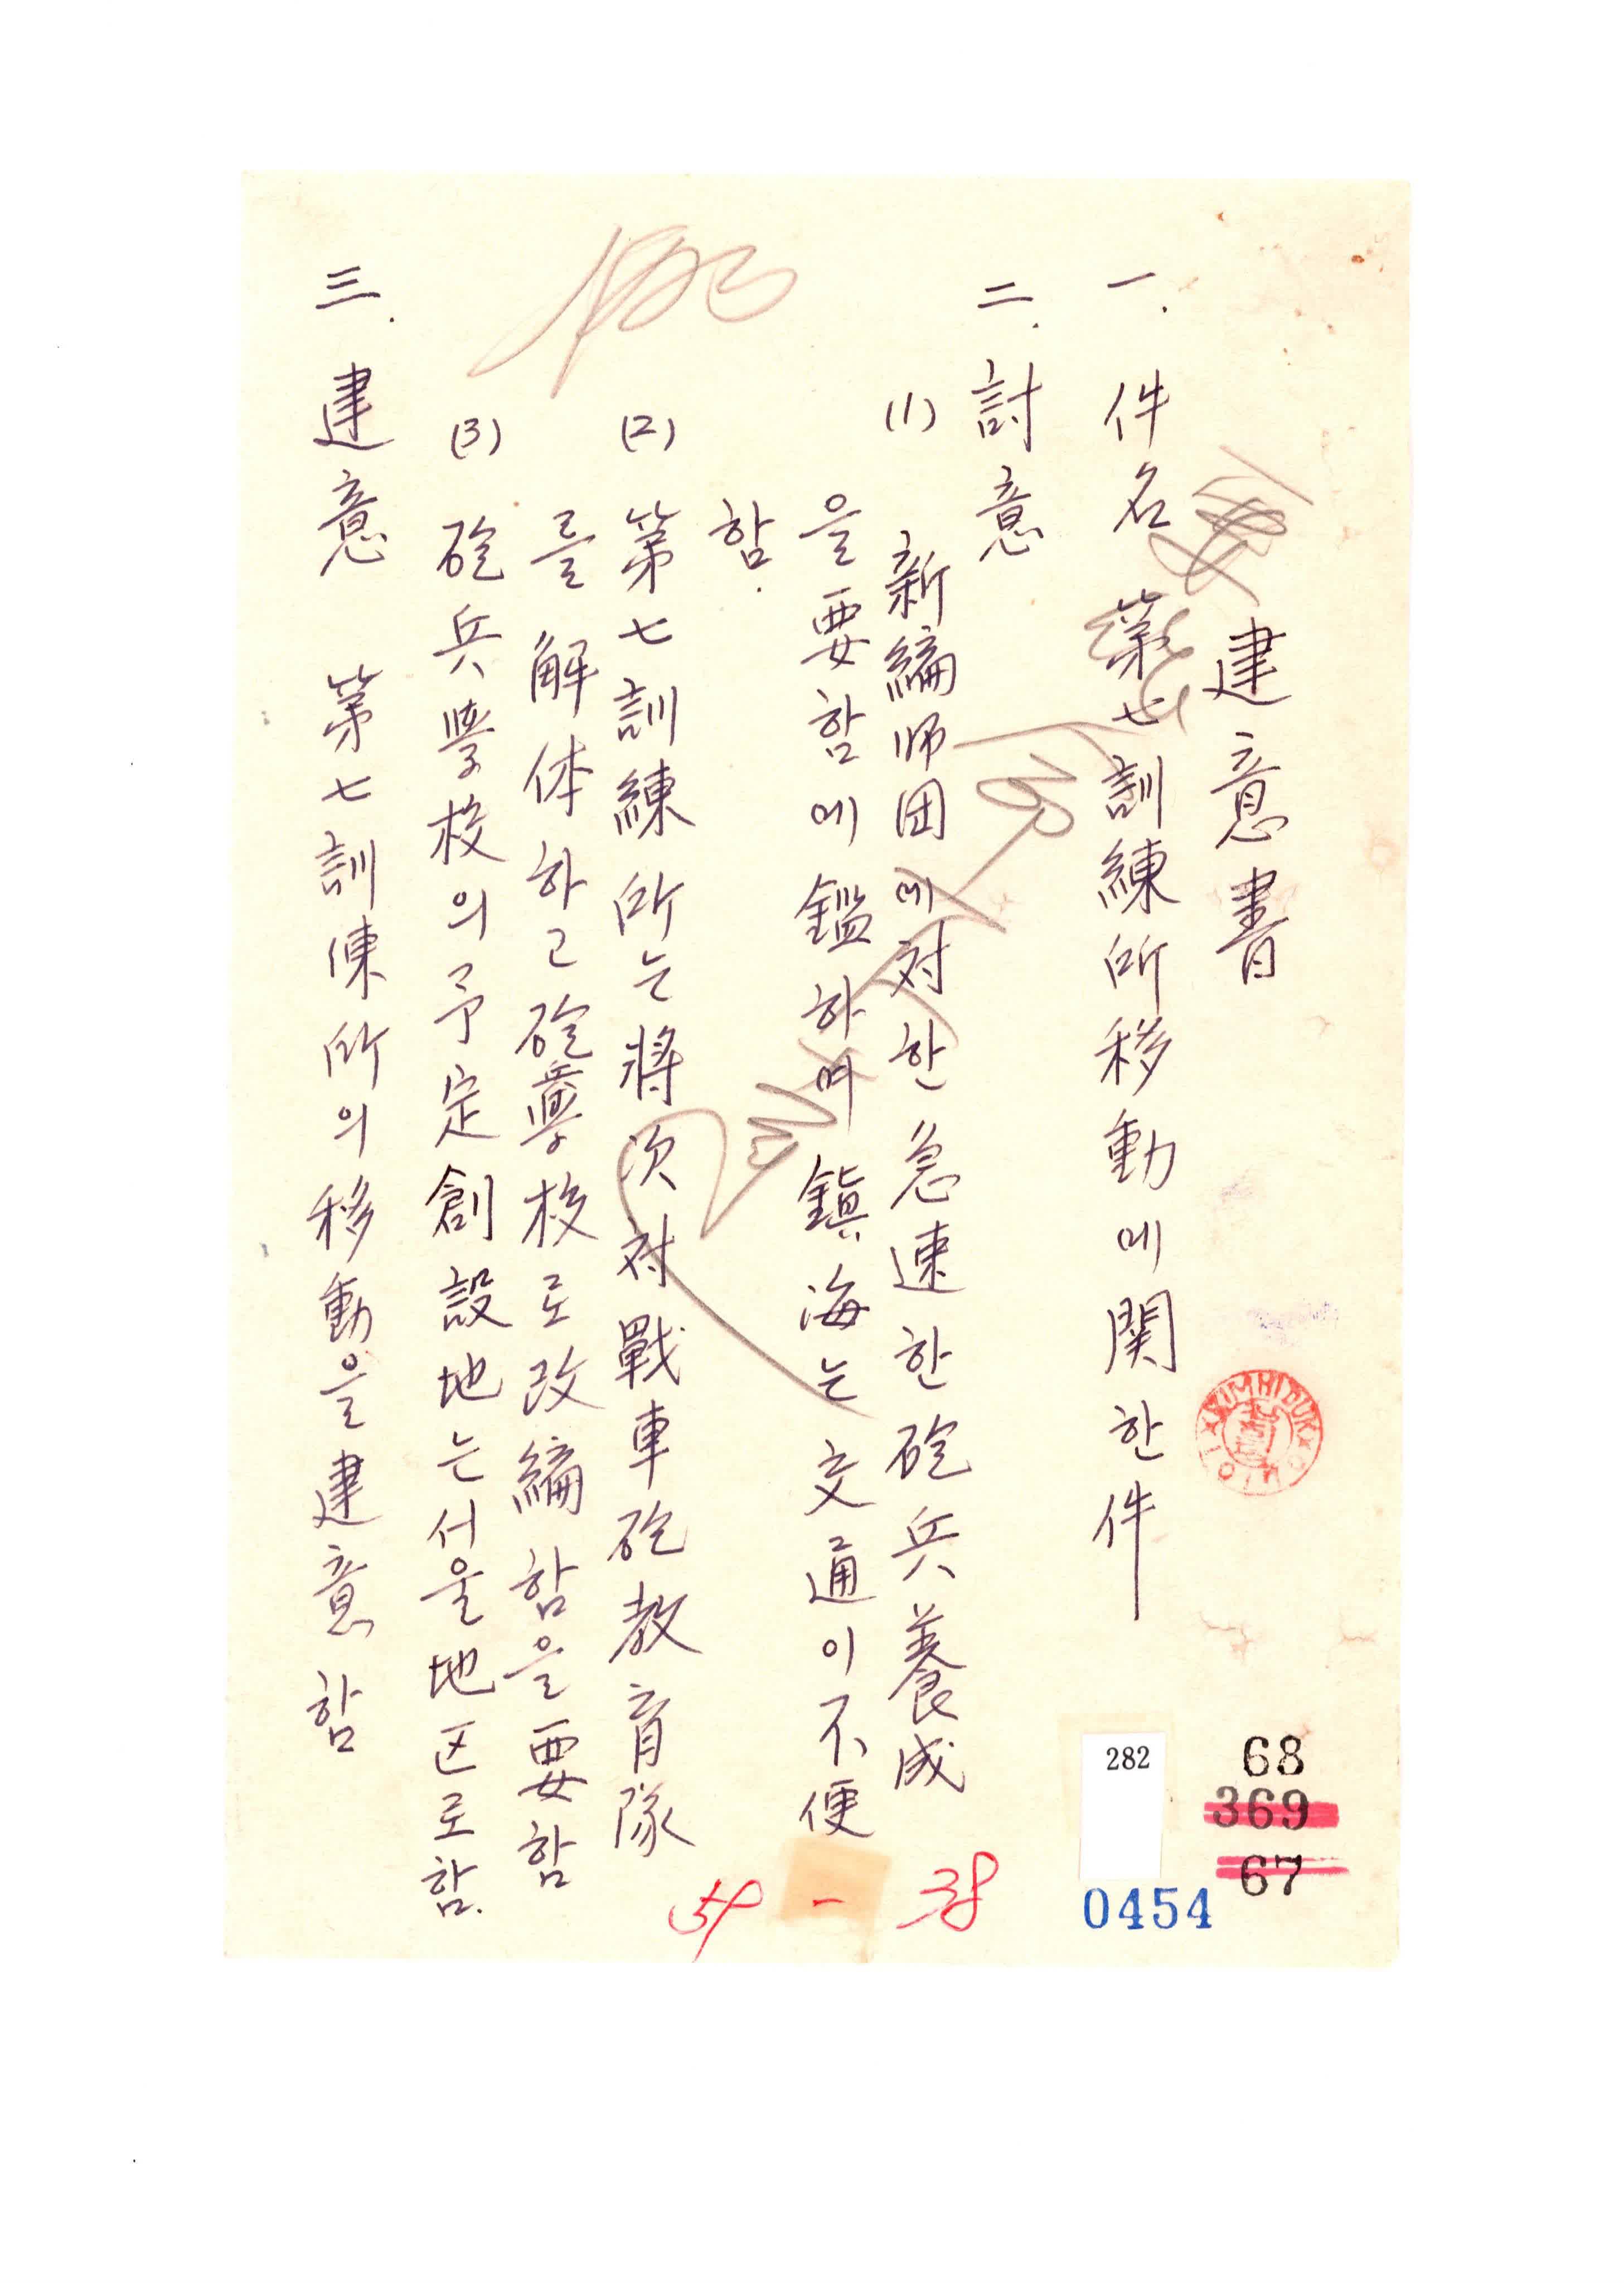 建意書
一. 件名 第七訓練所移動에関한件
二. 討意
(1) 新編师団에対한急速한砲兵養成
을要함에鑑하며 鎭海는交通이不便
함.
(2) 第七訓練所는將次対戰車砲教育隊
를解体하고砲兵學校로改編함을要함
(3) 砲兵學校의予定創設地는서울地区로함.
三. 建意 第七訓俥所의移動을建意함
282
68
369
67
0454
54 - 38